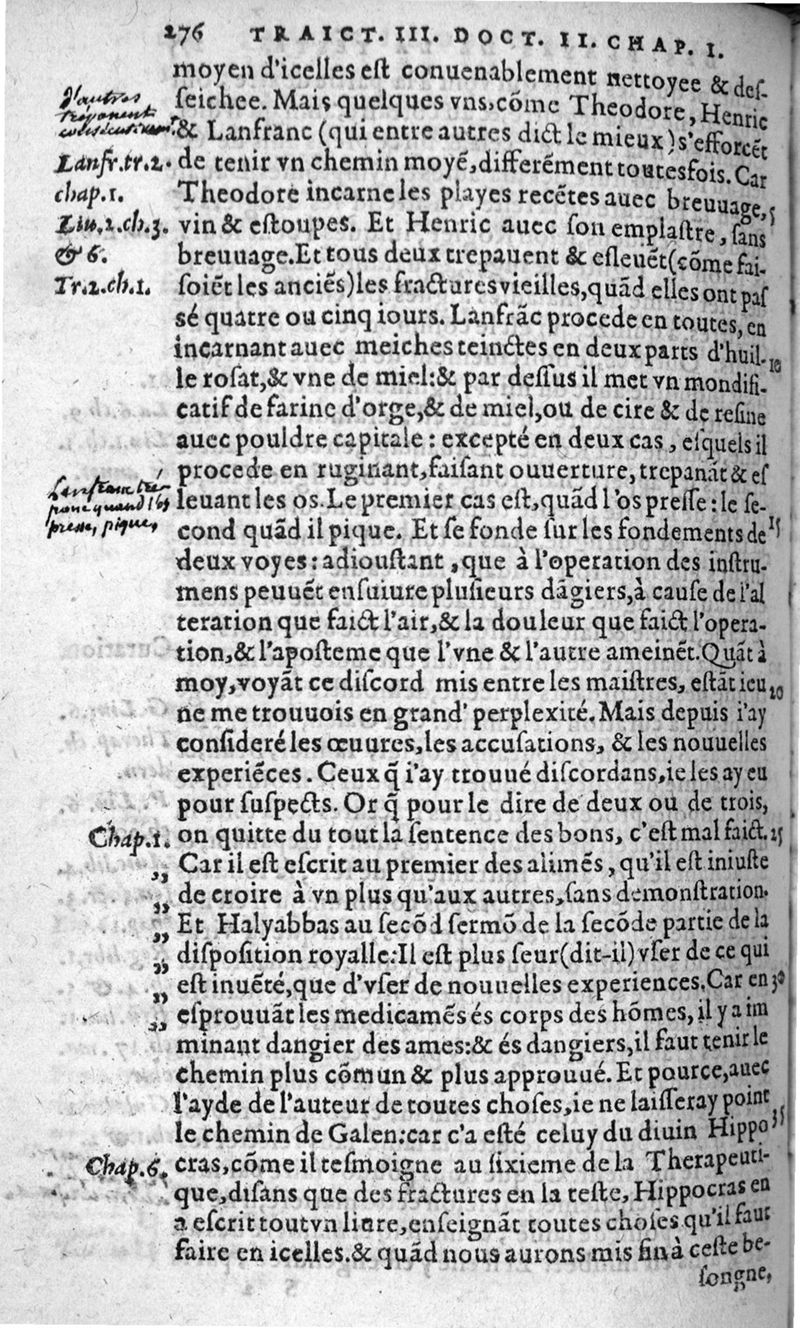 276 TRAICT. III. DOCT. II. CHAP. I.
moyen d'icelles eſt conuenablement nettoyee & deſ-
ſeichee. Mais quelques vns, cõme Theodore, Henric
& Lanfranc (qui entre autres dict le mieux) s'efforcẽt
Lanfr. tr. 2. de tenir vn chemin moyẽ, differẽment toutesfois. Car
chap. 1. Theodore incarne les playes recẽtes auec breuuage, 5
Liu. 2. ch. 3. vin & eſtoupes. Et Henric auec ſon emplaſtre, ſans
& 6. breuuage. Et tous deux trepanent & eſleuẽt (cõme fai-
Tr. 2. ch. 1. ſoiẽt les anciẽs) les fractures vieilles, quãd elles ont paſ
sé quatre ou cinq iours. Lanfrãc procede en toutes, en
incarnant auec meiches teinctes en deux parts d'huil- 10
le roſat, & vne de miel: & par deſſus il met vn mondifi-
catif de farine d'orge, & de miel, ou de cire & de reſine
auec pouldre capitale: excepté en deux cas, eſquels il
procede en ruginant, faiſant ouuerture, trepanãt & eſ
leuant les os. Le premier cas eſt, quãd l'os preſſe: le ſe-
cond quãd il pique. Et ſe fonde ſur les fondements de 15
deux voyes: adiouſtant, que à l'operation des inſtru-
mens peuuẽt enſuiure pluſieurs dãgiers, à cauſe de l'al
teration que faict l'air, & la douleur que faict l'opera-
tion, & l'apoſteme que l'vne & l'autre ameinẽt. Quãt à
moy, voyãt ce diſcord mis entre les maiſtres, eſtãt ieu 20
ne me trouuois en grand' perplexité. Mais depuis i'ay
conſideré les œuures, les accuſations, & les nouuelles
experiẽces. Ceux q̃ i'ay trouué diſcordans, ie les ay eu
pour ſuſpects. Or q̃ pour le dire de deux ou de trois,
Chap. 1. on quitte du tout la ſentence des bons, c'eſt mal faict. 25
Car il eſt eſcrit au premier des alimẽs, qu'il eſt iniuſte
,, de croire à vn plus qu'aux autres, ſans demonſtration.
,, Et Halyabbas au ſecõd ſermõ de la ſecõde partie de la
,, diſpoſition royalle: Il eſt plus ſeur (dit-il) vſer de ce qui
,, eſt inuẽté, que d'vſer de nouuelles experiences. Car en 30
,, eſprouuãt les medicamẽs és corps des hõmes, il y a im
,, minant dangier des ames: & és dangiers, il faut tenir le
chemin plus cõmun & plus approuué. Et pource, auec
l'ayde de l'auteur de toutes choſes, ie ne laiſſeray point
le chemin de Galen: car c'a eſté celuy du diuin Hippo 35
Chap. 6. cras, cõme il teſmoigne au ſixieme de la Therapeuti-
que, diſans que des fractures en la teſte, Hippocras en
a eſcrit tout vn liure, enſeignãt toutes choſes qu'il faut
faire en icelles. & quãd nous aurons mis fin à ceſte be-
ſongne,